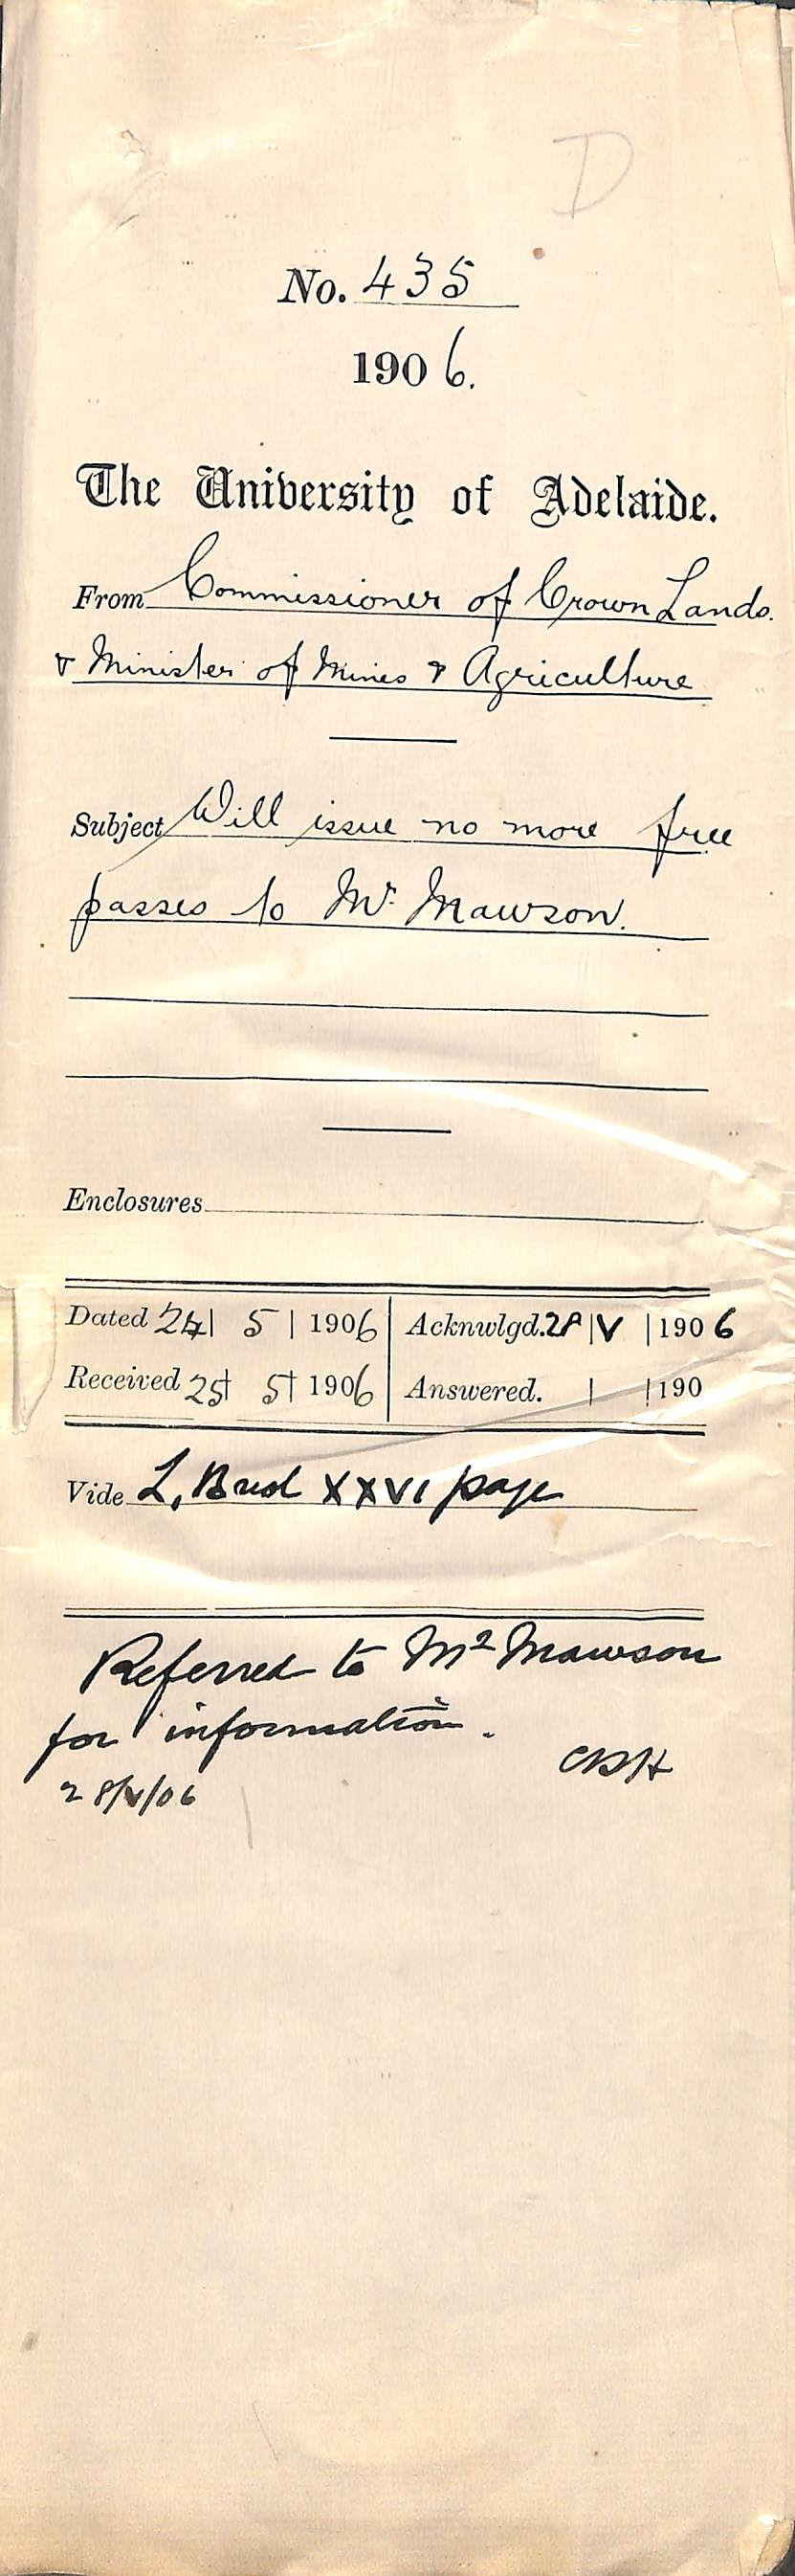 D
No. 435
1906.
The University of Adelaide.
From Commissioner of Crown Lands.
& Minister of Mines & Agriculture
Subject Will issue no more free
passes to Mr. Mawson.
Enclosures
Dated 24 | 5 | 1906 Acknwlgd. 28 | V | 1906
Received 25 | 5 | 1906 Answered. | | 190
Vide L, XXVI page
Referred to Mr Mawson
for information.
CRH
28/V/06